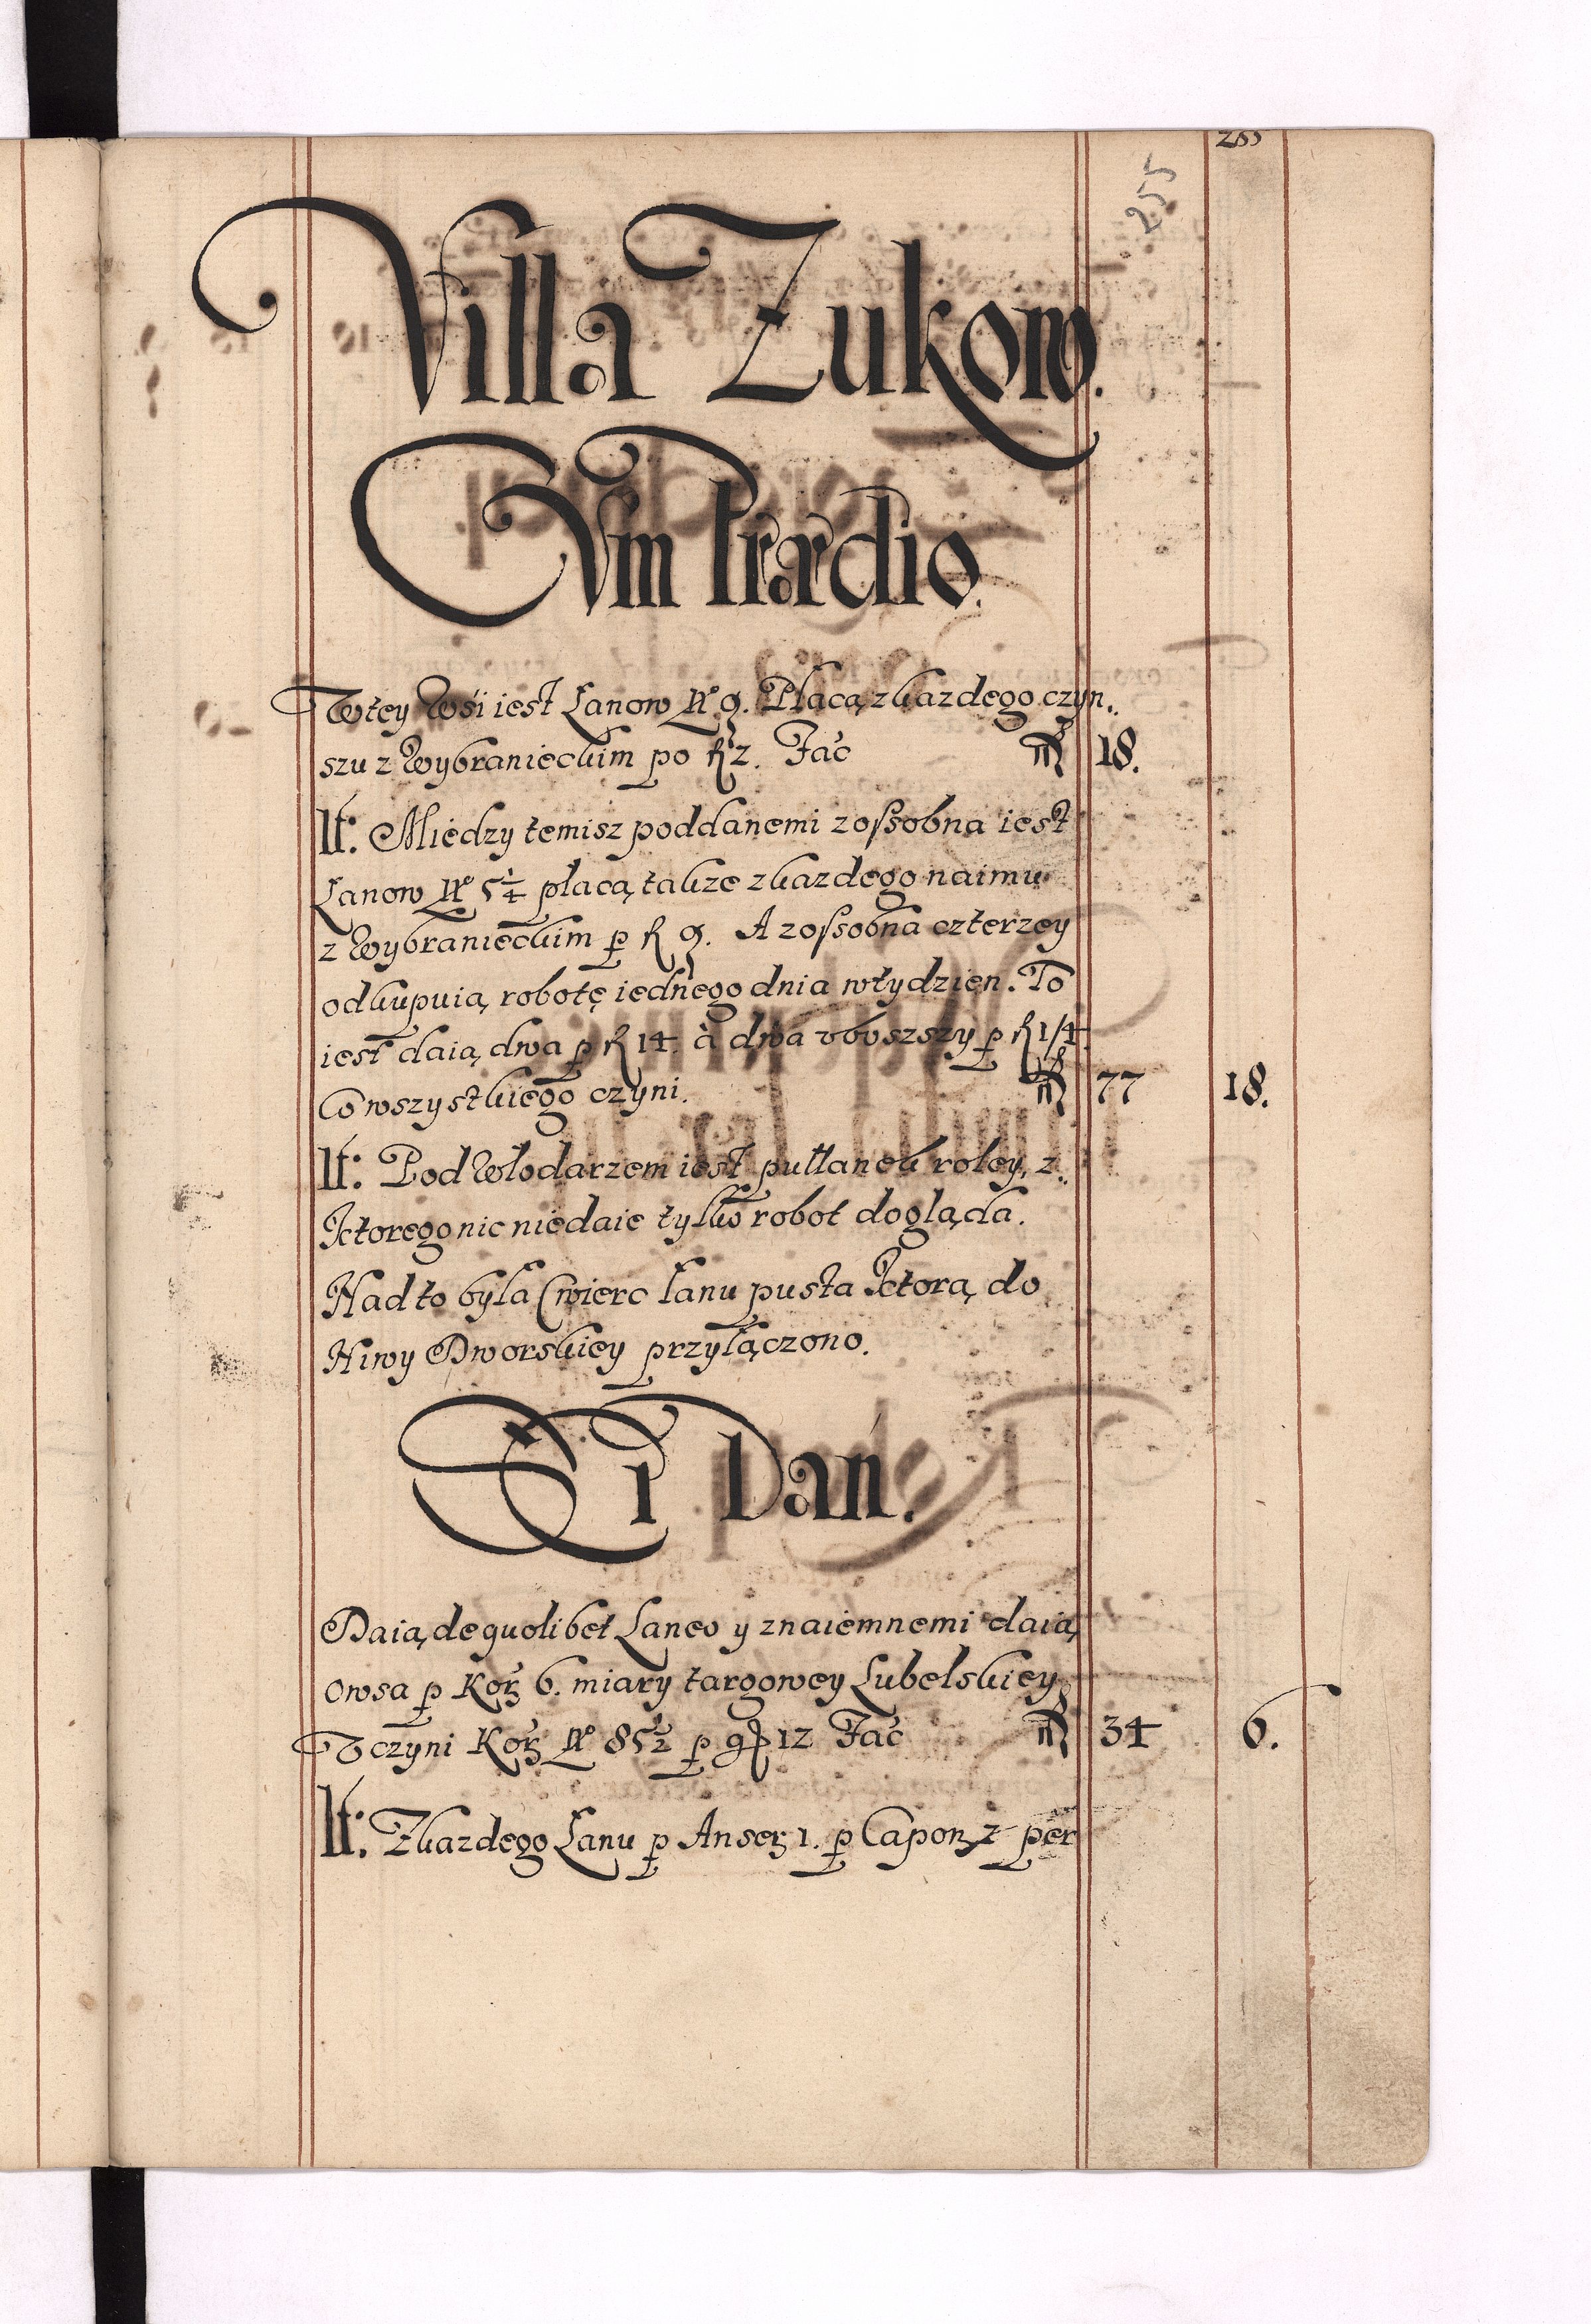 255
255
Villa Zukow.
Cum Prædio.
W tey Wsi iest Łanow Nº 9. Płacą z kazdego czyn,,
szu z Wybranieckim po fl 2. Fać fl 18.
It: Miedzy temisz poddanemi zossobna iest
Łanow Nº 5 1/4 płacą takze z kazdego naimu
z Wybranieckim p fl 9. A zossobna czterzey
odkupuią robotę iednego dnia w tydzien. To
iest daią dwa p fl 14. à dwa vboszszy p fl 1/4.
Co wszystkiego czyni. fl 77 18.
It: Pod Włodarzem iest pułłanek roley, z,,
Ktorego nic niedaie tylko robot dogląda.
Nad to była Cwierc łanu pusta Ktorą do
Niwy Dworskiey przyłączono.
Dań.
Daią de quolibet Laneo y z naiemnemi daią
owsa p Kor̃ 6. miary targowey Lubelskiey
Tczyni Kor̃ Nº 85 1/2 p gr 12 Fać fl 34 6.
It: Z kazdego Łanu p Anser 1. p Capon 2 per